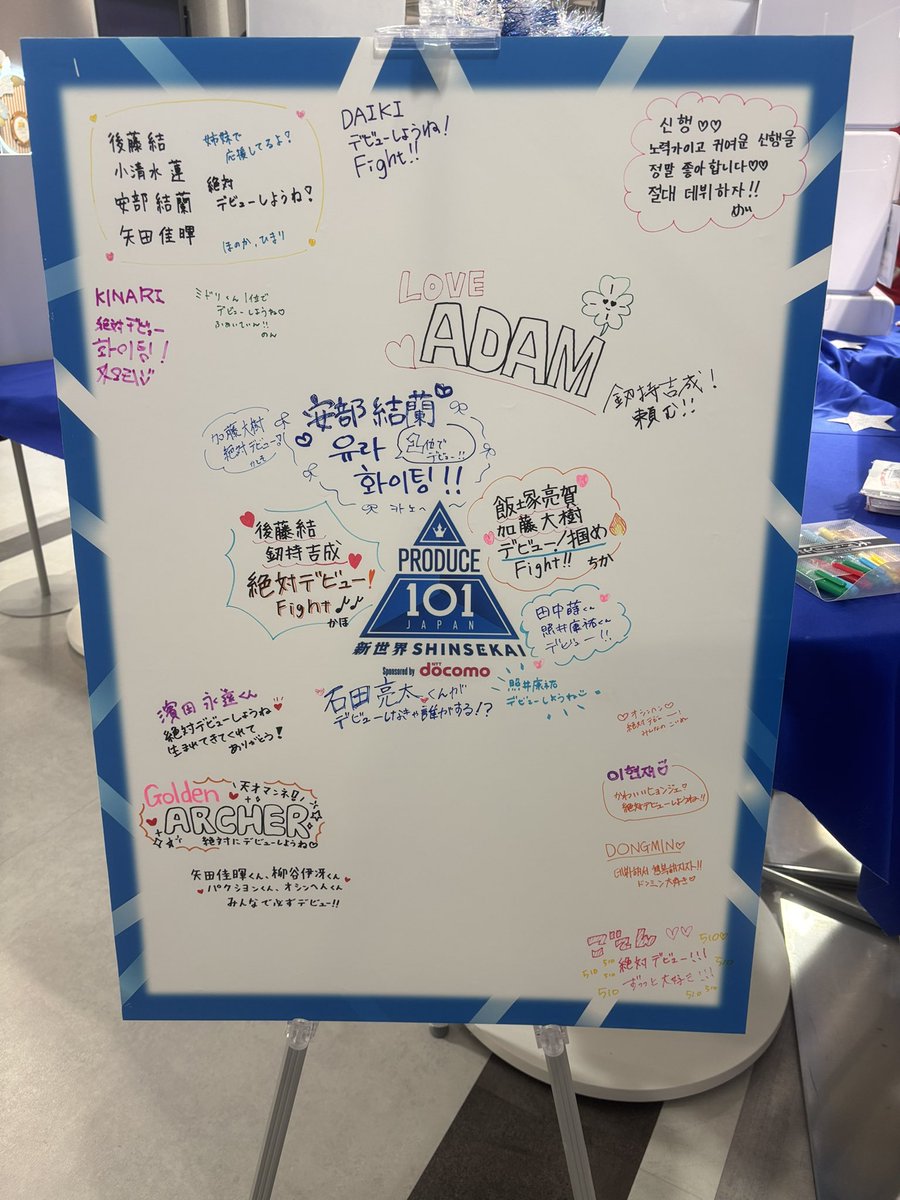 後藤 結
小清水 蓮
安部 結蘭
矢田 佳暉
姉妹で
応援してるよ?
絶対
デビューしようね?
ほのか、ひまり
DAIKI
デビューしようね!
Fight!!
신행♡♡
노력가이고 귀여운 신행을
정말 좋아합니다♡♡
절대 데뷔하자!!
めい
KINARI
絶対デビュー
화이팅!!
ミドリくん1位で
デビューしようね♡
のん
LOVE
ADAM
釼持吉成!
頼む!!
加藤大樹
絶対デビュー
安部 結蘭
유라
1位で
デビュー!!
화이팅!!
カノへ
後藤 結
釼持吉成
絶対デビュー!
Fight♪♪
かほ
飯塚亮賀
加藤大樹
デビュー掴め
Fight!!
ちか
PRODUCE
101
JAPAN
新世界 SHINSEKAI
Sponsored by NTT docomo
田中蒔くん
照井康祐くん
デビュー!!
照井康祐
デビューしようね
石田亮太くんが
デビューしなきゃ誰がする!?
濱田永遠くん
絶対デビューしようね
生まれてきてくれて
ありがとう!
♡オシンハン♡
絶対デビュー!
이현재♡
かわいいヒョンジェ♡
絶対デビューしようね!!
Golden
天才マンネ!
ARCHER
絶対にデビューしようね♡
DONGMIN♡
ドンミン大好き♡
矢田佳暉くん、柳谷伊冴くん
パクションくん、オシンヘんくん
みんなで必ずデビュー!!
ごてん ♡♡
絶対デビュー!!!
ずっっと大好き!!!
510
510
510
510
510
510
510